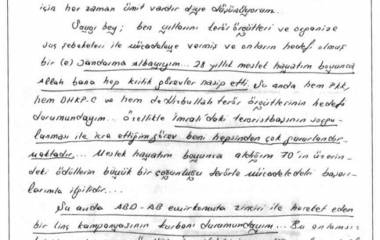 için her zaman ümit vardır diye düşünüyorum.
Saygı bey; ben yıllarını terör örgütleri ve organize
suç şebekeleri ile mücadeleye vermiş ve onların hedefi olmuş
bir (e) Jandarma albayıyım... 28 yıllık meslek hayatım boyunca
Allah bana hep kritik görevler nasip etti. Şu anda hem PKK,
hem DHKP-C ve hem de Hizbullah terör örgütlerinin hedefi
durumundayım... özellikle İmralı'daki teröristbaşının sorgu-
lanması ile icra ettiğim görev beni hepsinden çok gururlandır-
maktadır... Meslek hayatım boyunca aldığım 70'in üzerin-
deki ödüllerin büyük bir çoğunluğu terörle mücadeledeki başarı-
larımla ilgilidir...
Şu anda ABD-AB emir komuta zinciri ile hareket eden
bir linç kampanyasının kurbanı durumundayım... Bu anlamsız